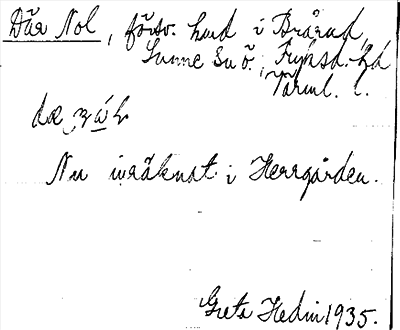 Där Nol, försv. hmd i Bråråd,
Sunne Sn ö., Fryksd. hd
Värml. l.
Nu inräknat i Herrgården.
Greta Hedin 1935.